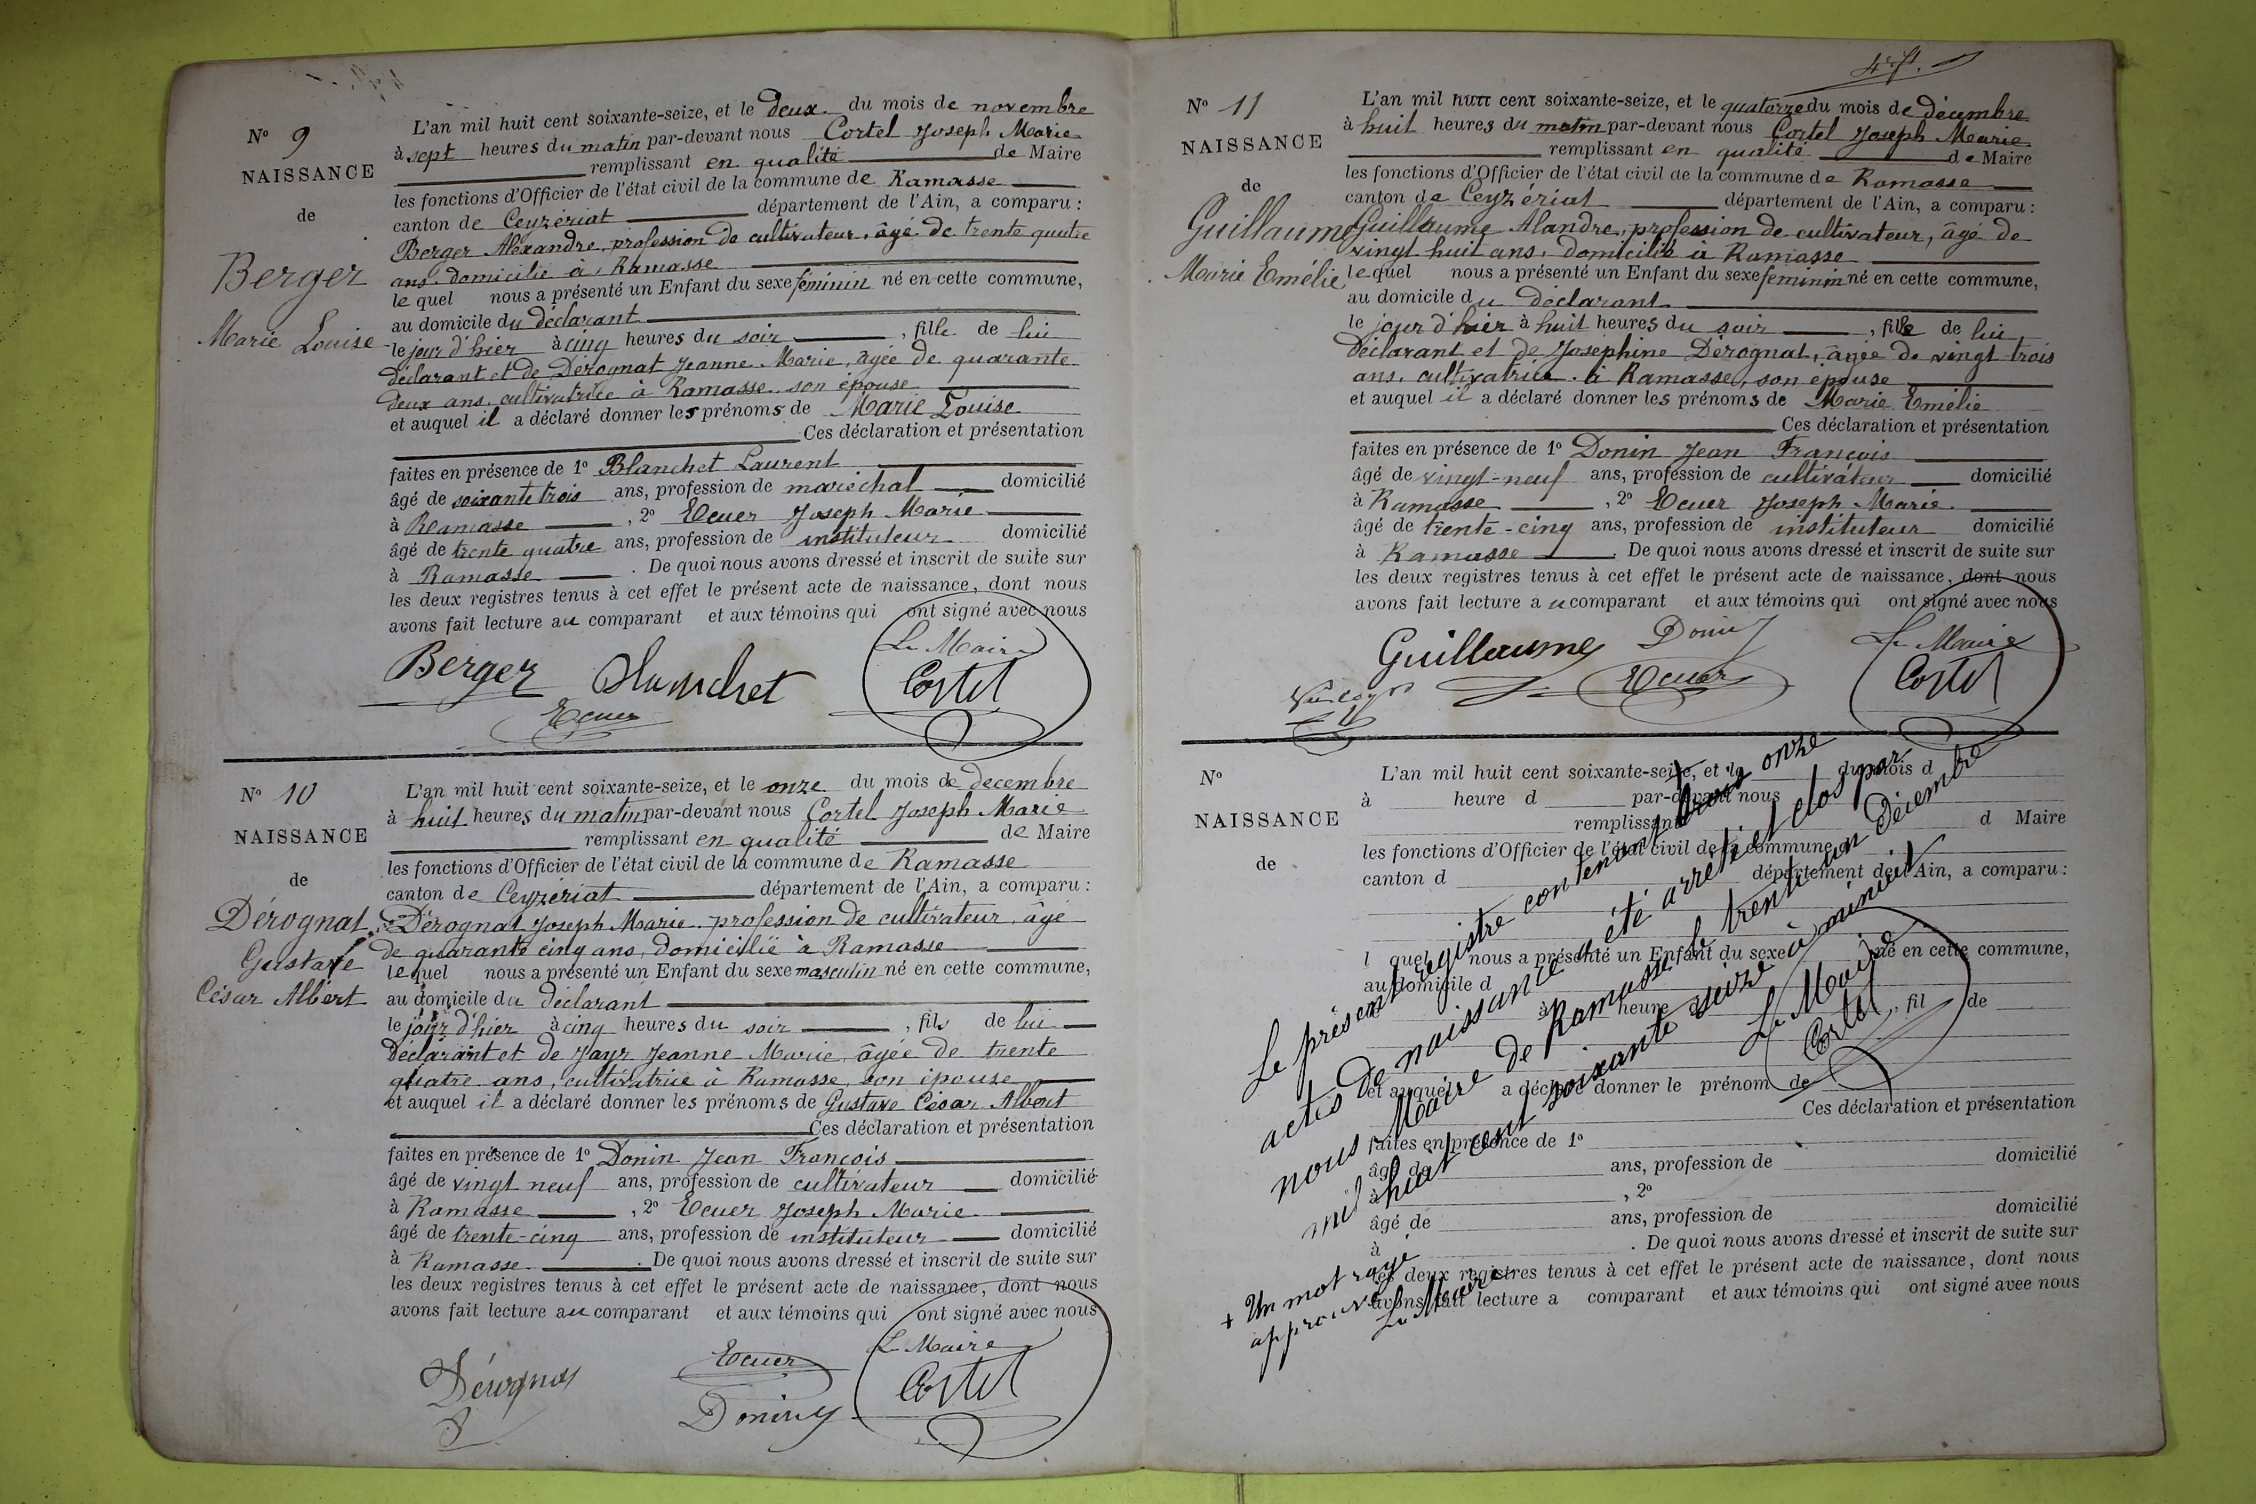 N° 9
NAISSANCE
de
Berger
Marie Louise
L'an mil huit cent soixante-seize, et le deux du mois de novembre
à sept heures du matin par-devant nous Cortel Joseph Marie
remplissant en qualité de Maire
les fonctions d'Officier de l'état civil de la commune de Ramasse
canton de Ceyzériat département de l'Ain, a comparu :
Berger Alexandre, profession de cultivateur, âgé de trente quatre
ans, domicilié à Ramasse
le quel nous a présenté un Enfant du sexe féminin né en cette commune,
au domicile du déclarant
le jour d'hier à cinq heures du soir , fille de lui
déclarant et de Dérognat Jeanne Marie, âgée de quarante
deux ans, cultivatrice à Ramasse, son épouse
et auquel il a déclaré donner les prénoms de Marie Louise
Ces déclaration et présentation
faites en présence de 1° Blanchet Laurent
âgé de soixante trois ans, profession de maréchal domicilié
à Ramasse , 2° Ecuer Joseph Marie
âgé de trente quatre ans, profession de instituteur domicilié
à Ramasse . De quoi nous avons dressé et inscrit de suite sur
les deux registres tenus à cet effet le présent acte de naissance, dont nous
avons fait lecture au comparant et aux témoins qui ont signé avec nous
Le Maire
Berger Blanchet Cortel
Ecuer
N° 10
NAISSANCE
de
Dérognat
Gustave
César Albert
L'an mil huit cent soixante-seize, et le onze du mois de décembre
à huit heures du matin par-devant nous Cortel Joseph Marie
remplissant en qualité de Maire
les fonctions d'Officier de l'état civil de la commune de Ramasse
canton de Ceyzériat département de l'Ain, a comparu :
Dérognat Joseph Marie, profession de cultivateur, âgé
de quarante cinq ans, domicilié à Ramasse
le quel nous a présenté un Enfant du sexe masculin né en cette commune,
au domicile du déclarant
le jour d'hier à cinq heures du soir , fils de lui
déclarant et de Jayr Jeanne Marie, âgée de trente
quatre ans, cultivatrice à Ramasse, son épouse
et auquel il a déclaré donner les prénoms de Gustave César Albert
Ces déclaration et présentation
faites en présence de 1° Donin Jean François
âgé de vingt neuf ans, profession de cultivateur domicilié
à Ramasse , 2° Ecuer Joseph Marie
âgé de trente-cinq ans, profession de instituteur domicilié
à Ramasse . De quoi nous avons dressé et inscrit de suite sur
les deux registres tenus à cet effet le présent acte de naissance, dont nous
avons fait lecture au comparant et aux témoins qui ont signé avec nous
Le Maire
Dérognat Ecuer Cortel
Donin
N° 11
NAISSANCE
de
Guillaume
Marie Emélie
L'an mil huit cent soixante-seize, et le quatorze du mois de décembre
à huit heures du matin par-devant nous Cortel Joseph Marie
remplissant en qualité de Maire
les fonctions d'Officier de l'état civil de la commune de Ramasse
canton de Ceyzériat département de l'Ain, a comparu :
Guillaume Alandre, profession de cultivateur, âgé de
vingt huit ans, domicilié à Ramasse
le quel nous a présenté un Enfant du sexe féminin né en cette commune,
au domicile du déclarant
le jour d'hier à huit heures du soir , fille de lui
déclarant et de Josephine Dérognat, âgée de vingt trois
ans, cultivatrice à Ramasse, son épouse
et auquel il a déclaré donner les prénoms de Marie Emélie
Ces déclaration et présentation
faites en présence de 1° Donin Jean François
âgé de vingt-neuf ans, profession de cultivateur domicilié
à Ramasse , 2° Ecuer Joseph Marie
âgé de trente-cinq ans, profession de instituteur domicilié
à Ramasse . De quoi nous avons dressé et inscrit de suite sur
les deux registres tenus à cet effet le présent acte de naissance, dont nous
avons fait lecture au comparant et aux témoins qui ont signé avec nous
Guillaume Donin Le Maire
Ecuer Cortel
N°
NAISSANCE
de
L'an mil huit cent soixante-seize, et le du mois d
à heure d par-devant nous
remplissant d Maire
les fonctions d'Officier de l'état civil de la commune
canton d département de l'Ain, a comparu :
l quel nous a présenté un Enfant du sexe né en cette commune,
au domicile d
à heure , fil de
et auquel a déclaré donner le prénom de
Ces déclaration et présentation
faites en présence de 1°
âgé de ans, profession de domicilié
à , 2°
âgé de ans, profession de domicilié
à . De quoi nous avons dressé et inscrit de suite sur
les deux registres tenus à cet effet le présent acte de naissance, dont nous
avons fait lecture a comparant et aux témoins qui ont signé avec nous
Le présent registre contenant onze
actes de naissance a été arrêté et clos par
nous Maire de Ramasse le trente un Décembre
mil huit cent soixante seize à minuit
Le Maire
Cortel
+ Un mot rayé
approuvé
Le Maire